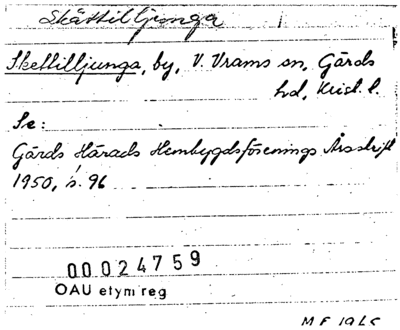 Skättilljunga
Skettilljunga, by, V. Vrams sn, Gärds
hd, Krist. l.
Se:
Gärds Härads Hembygdsförenings Årsskrift
1950, s. 96
00024759
OAU etym reg
M F 1965